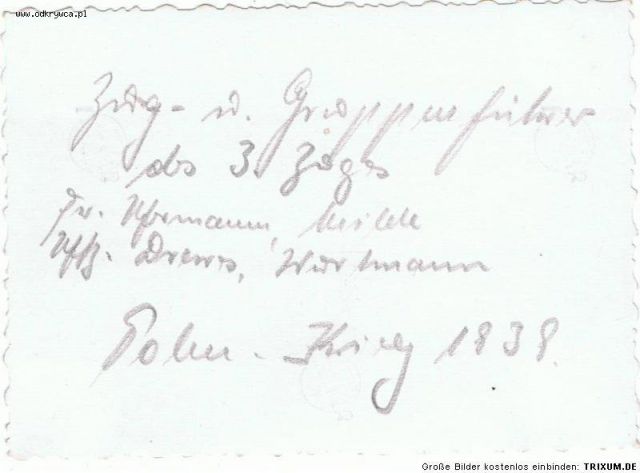 www.odkrywca.pl
Zug- u. Gruppenführer
des 3. Zuges
Milde
Uffz. Drews, Wortmann
Polen-Krieg 1939.
Große Bilder kostenlos einbinden: TRIXUM.DE